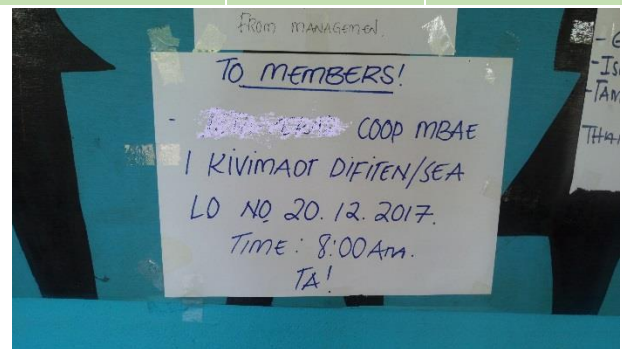 FROM MANAGEMEN
TO MEMBERS!
- COOP MBAE
I KIVIMAOT DIFITEN/SEA
LO NO 20.12.2017.
TIME: 8:00 AM.
TA!